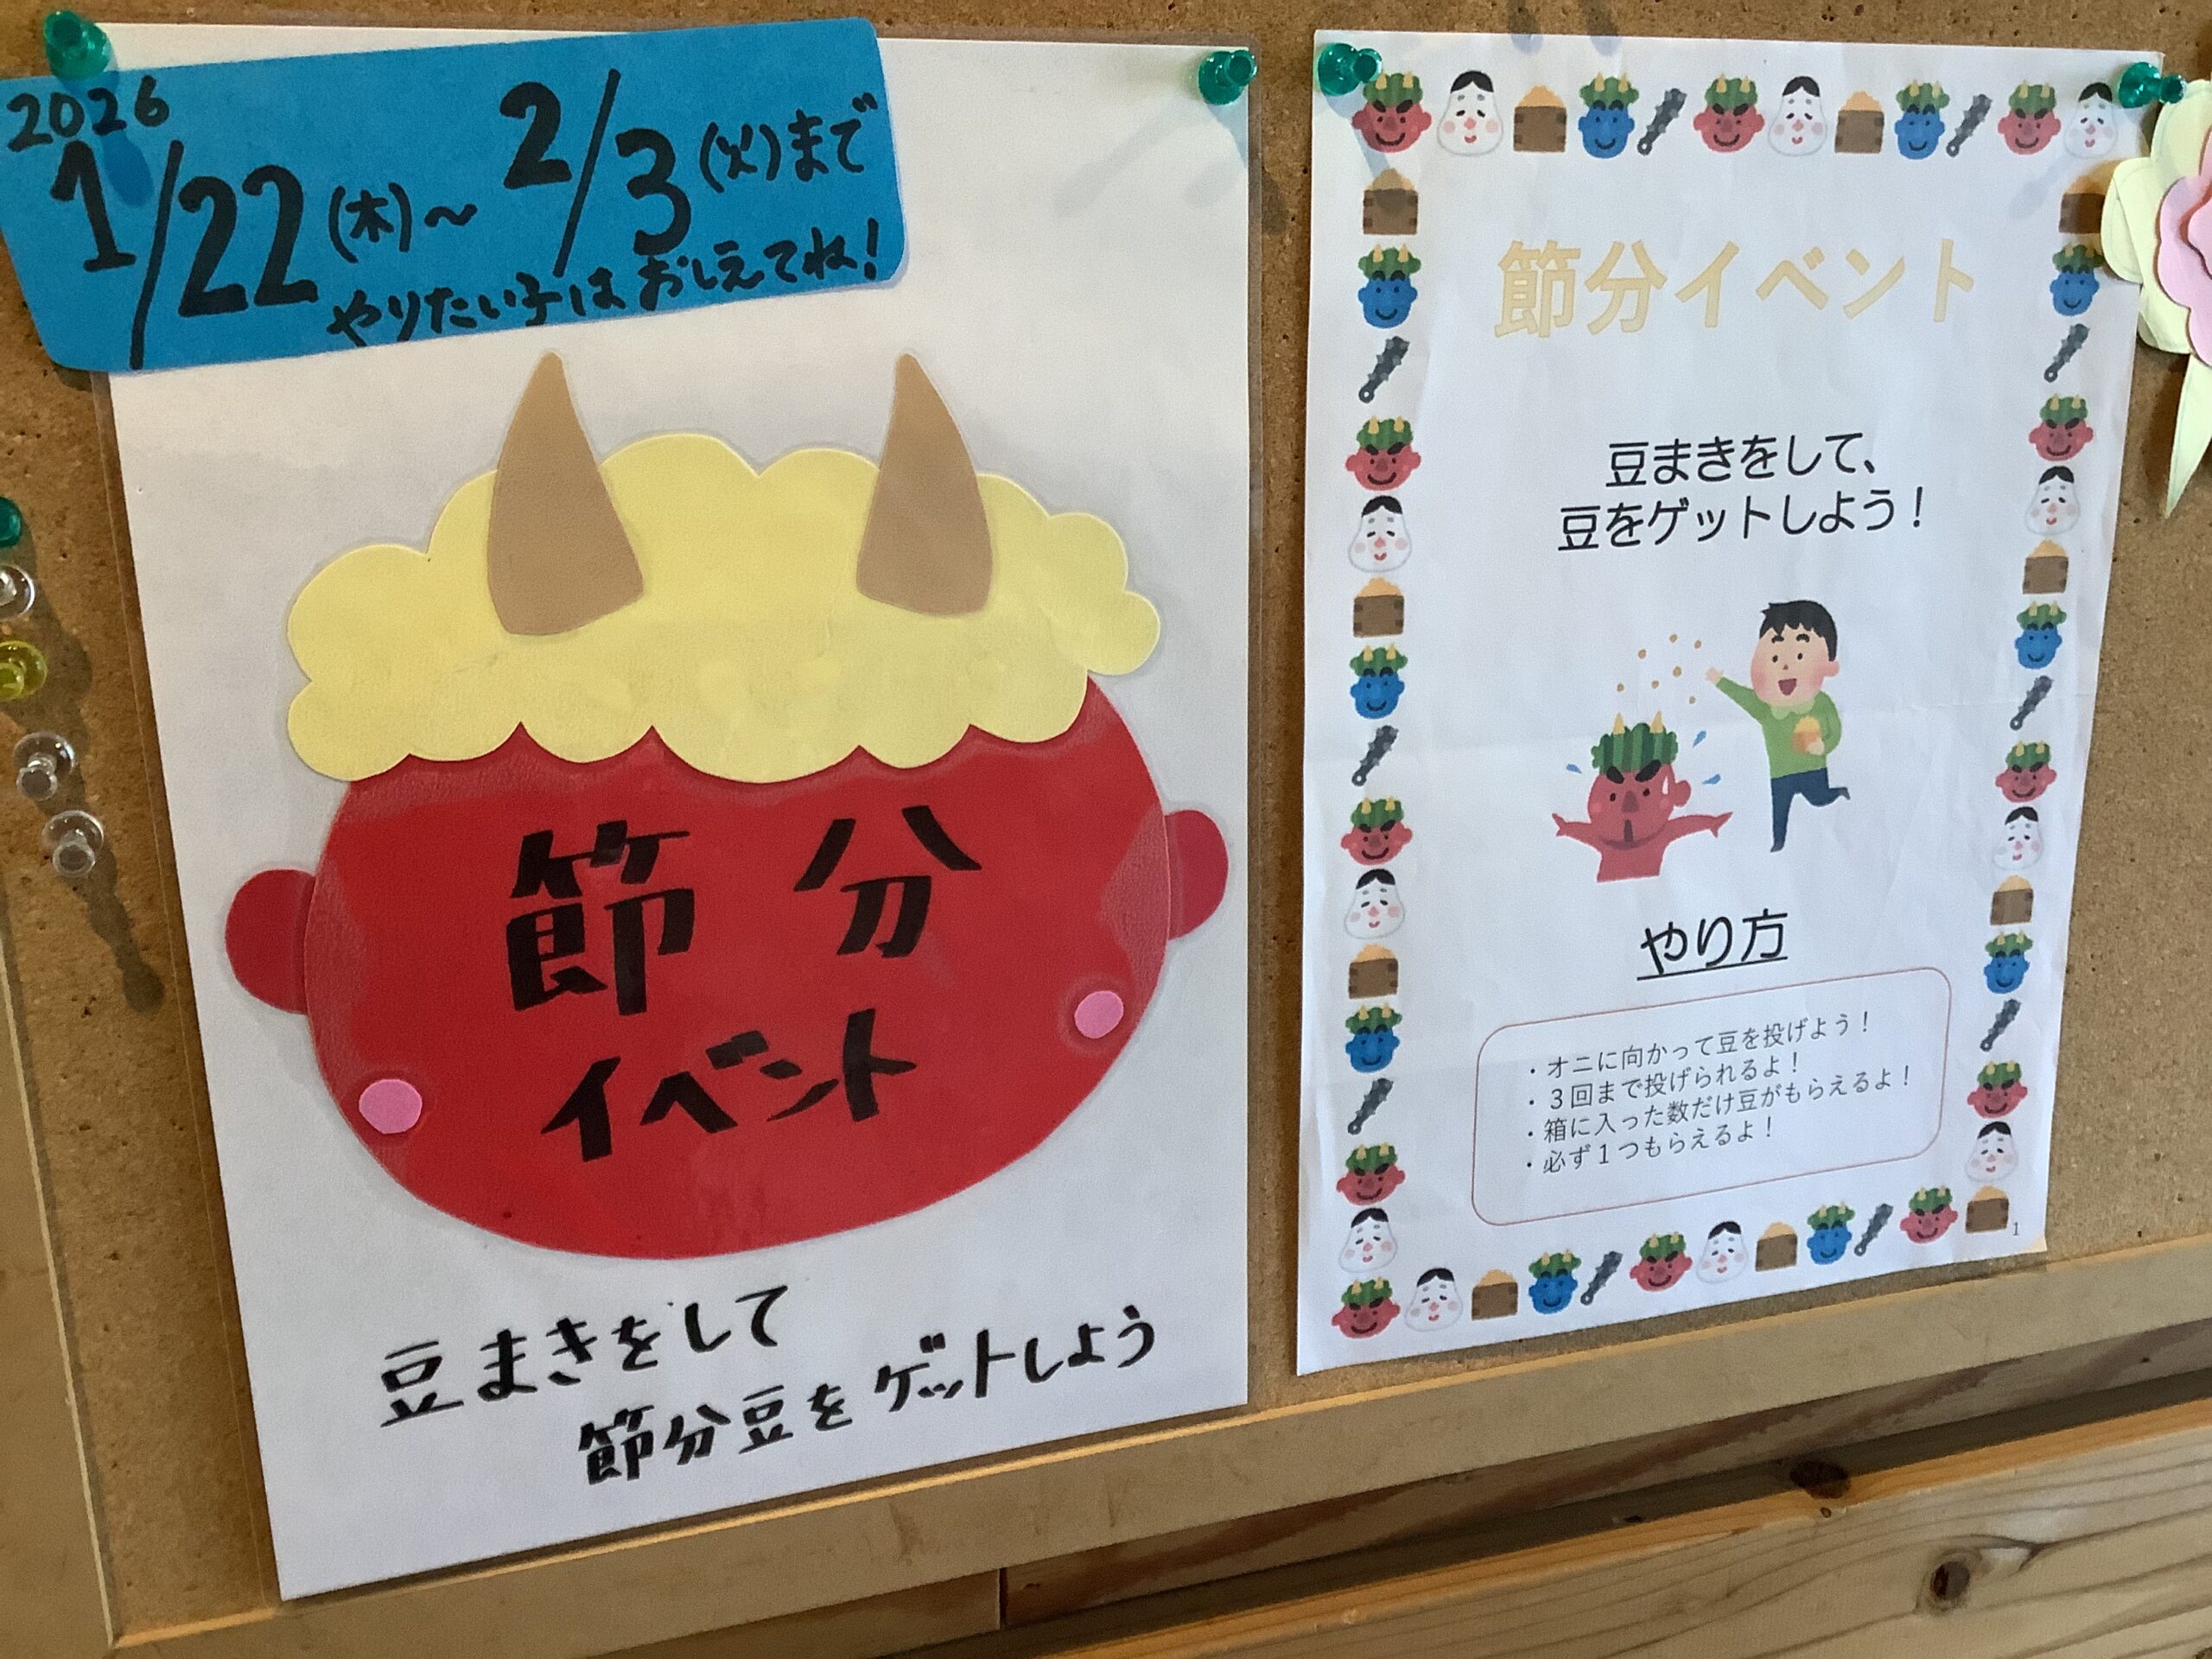 2026
1/22(木)～2/3(火)まで
やりたい子はおしえてね!
節分
イベント
豆まきをして
節分豆をゲットしよう
節分イベント
豆まきをして、
豆をゲットしよう！
やり方
・オニに向かって豆を投げよう！
・３回まで投げられるよ！
・箱に入った数だけ豆がもらえるよ！
・必ず１つもらえるよ！
1